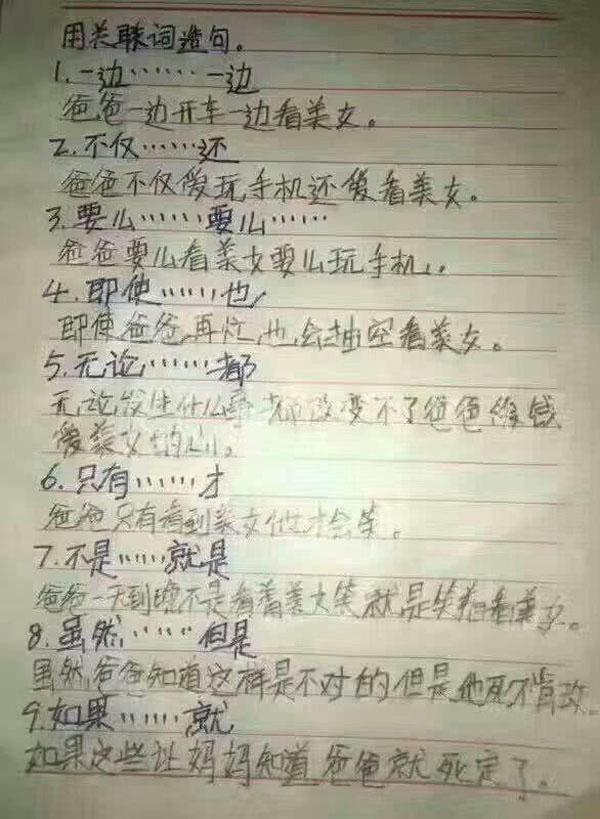 用关联词造句。
1.一边……一边
爸爸一边开车一边看美女。
2.不仅……还
爸爸不仅爱玩手机还爱看美女。
3.要么……要么……
爸爸要么看美女要么玩手机。
4.即使……也
即使爸爸再忙,也会抽空看美女。
5.无论……都
无论发生什么事都改变不了爸爸
爱美女的心。
6.只有……才
爸爸只有看到美女他才会笑。
7.不是……就是
爸爸一天到晚不是看着美女笑就是笑着看美女。
8.虽然……但是
虽然爸爸知道这样是不对的但是他死不肯改。
9.如果……就
如果这些让妈妈知道爸爸就死定了。